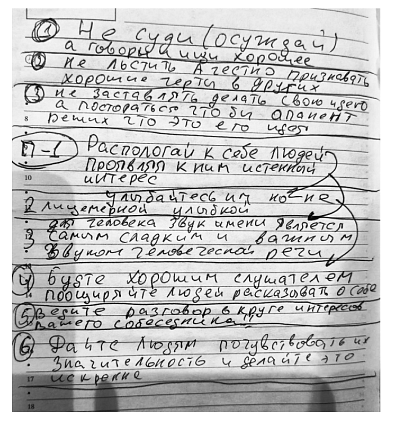 ① Не суди (осуждай)
а говори и ищи хорошее
② не льстить а честно признавать
хорошие черты в других
③ не заставлять делать свою идею
а постораться что бы апанент
решил что это его идея
П-1 Распологай к себе людей
Проявляя к ним истенный
интерес
2 улыбайтесь им но не
лицемерной улыбкой
3 для человека звук имени является
самым сладким и важным
звуком человеческой речи
④ Будте хорошим слушателем
поощиряйте людей рассказывать о себе
⑤ Ведите разговор в круге интересов
вашего собеседника
⑥ Дайте людям почувствовать их
значительность и делайте это
искренне
8
10
17
18